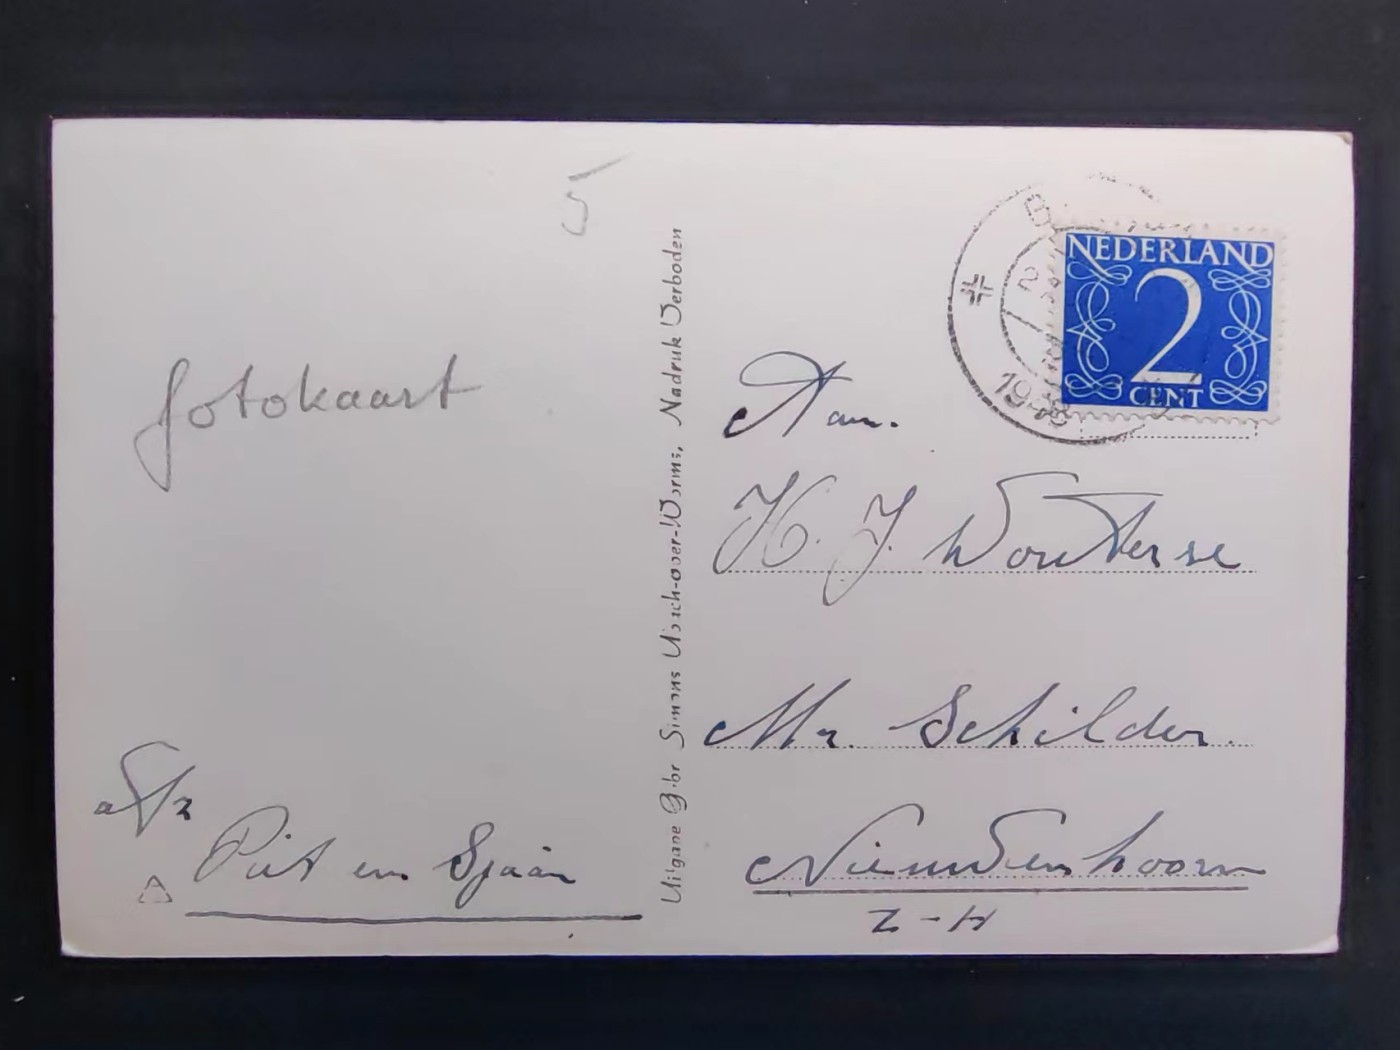 5
fotokaart
afz
Piet en Sjaan
Uitgave Gebr Simons Ubach-over-Worms, Nadruk Verboden
NEDERLAND
2
CENT
1948
Aan.
H. J. Wouterse
Mr. Schilder.
Nieuwenhoorn
Z-H